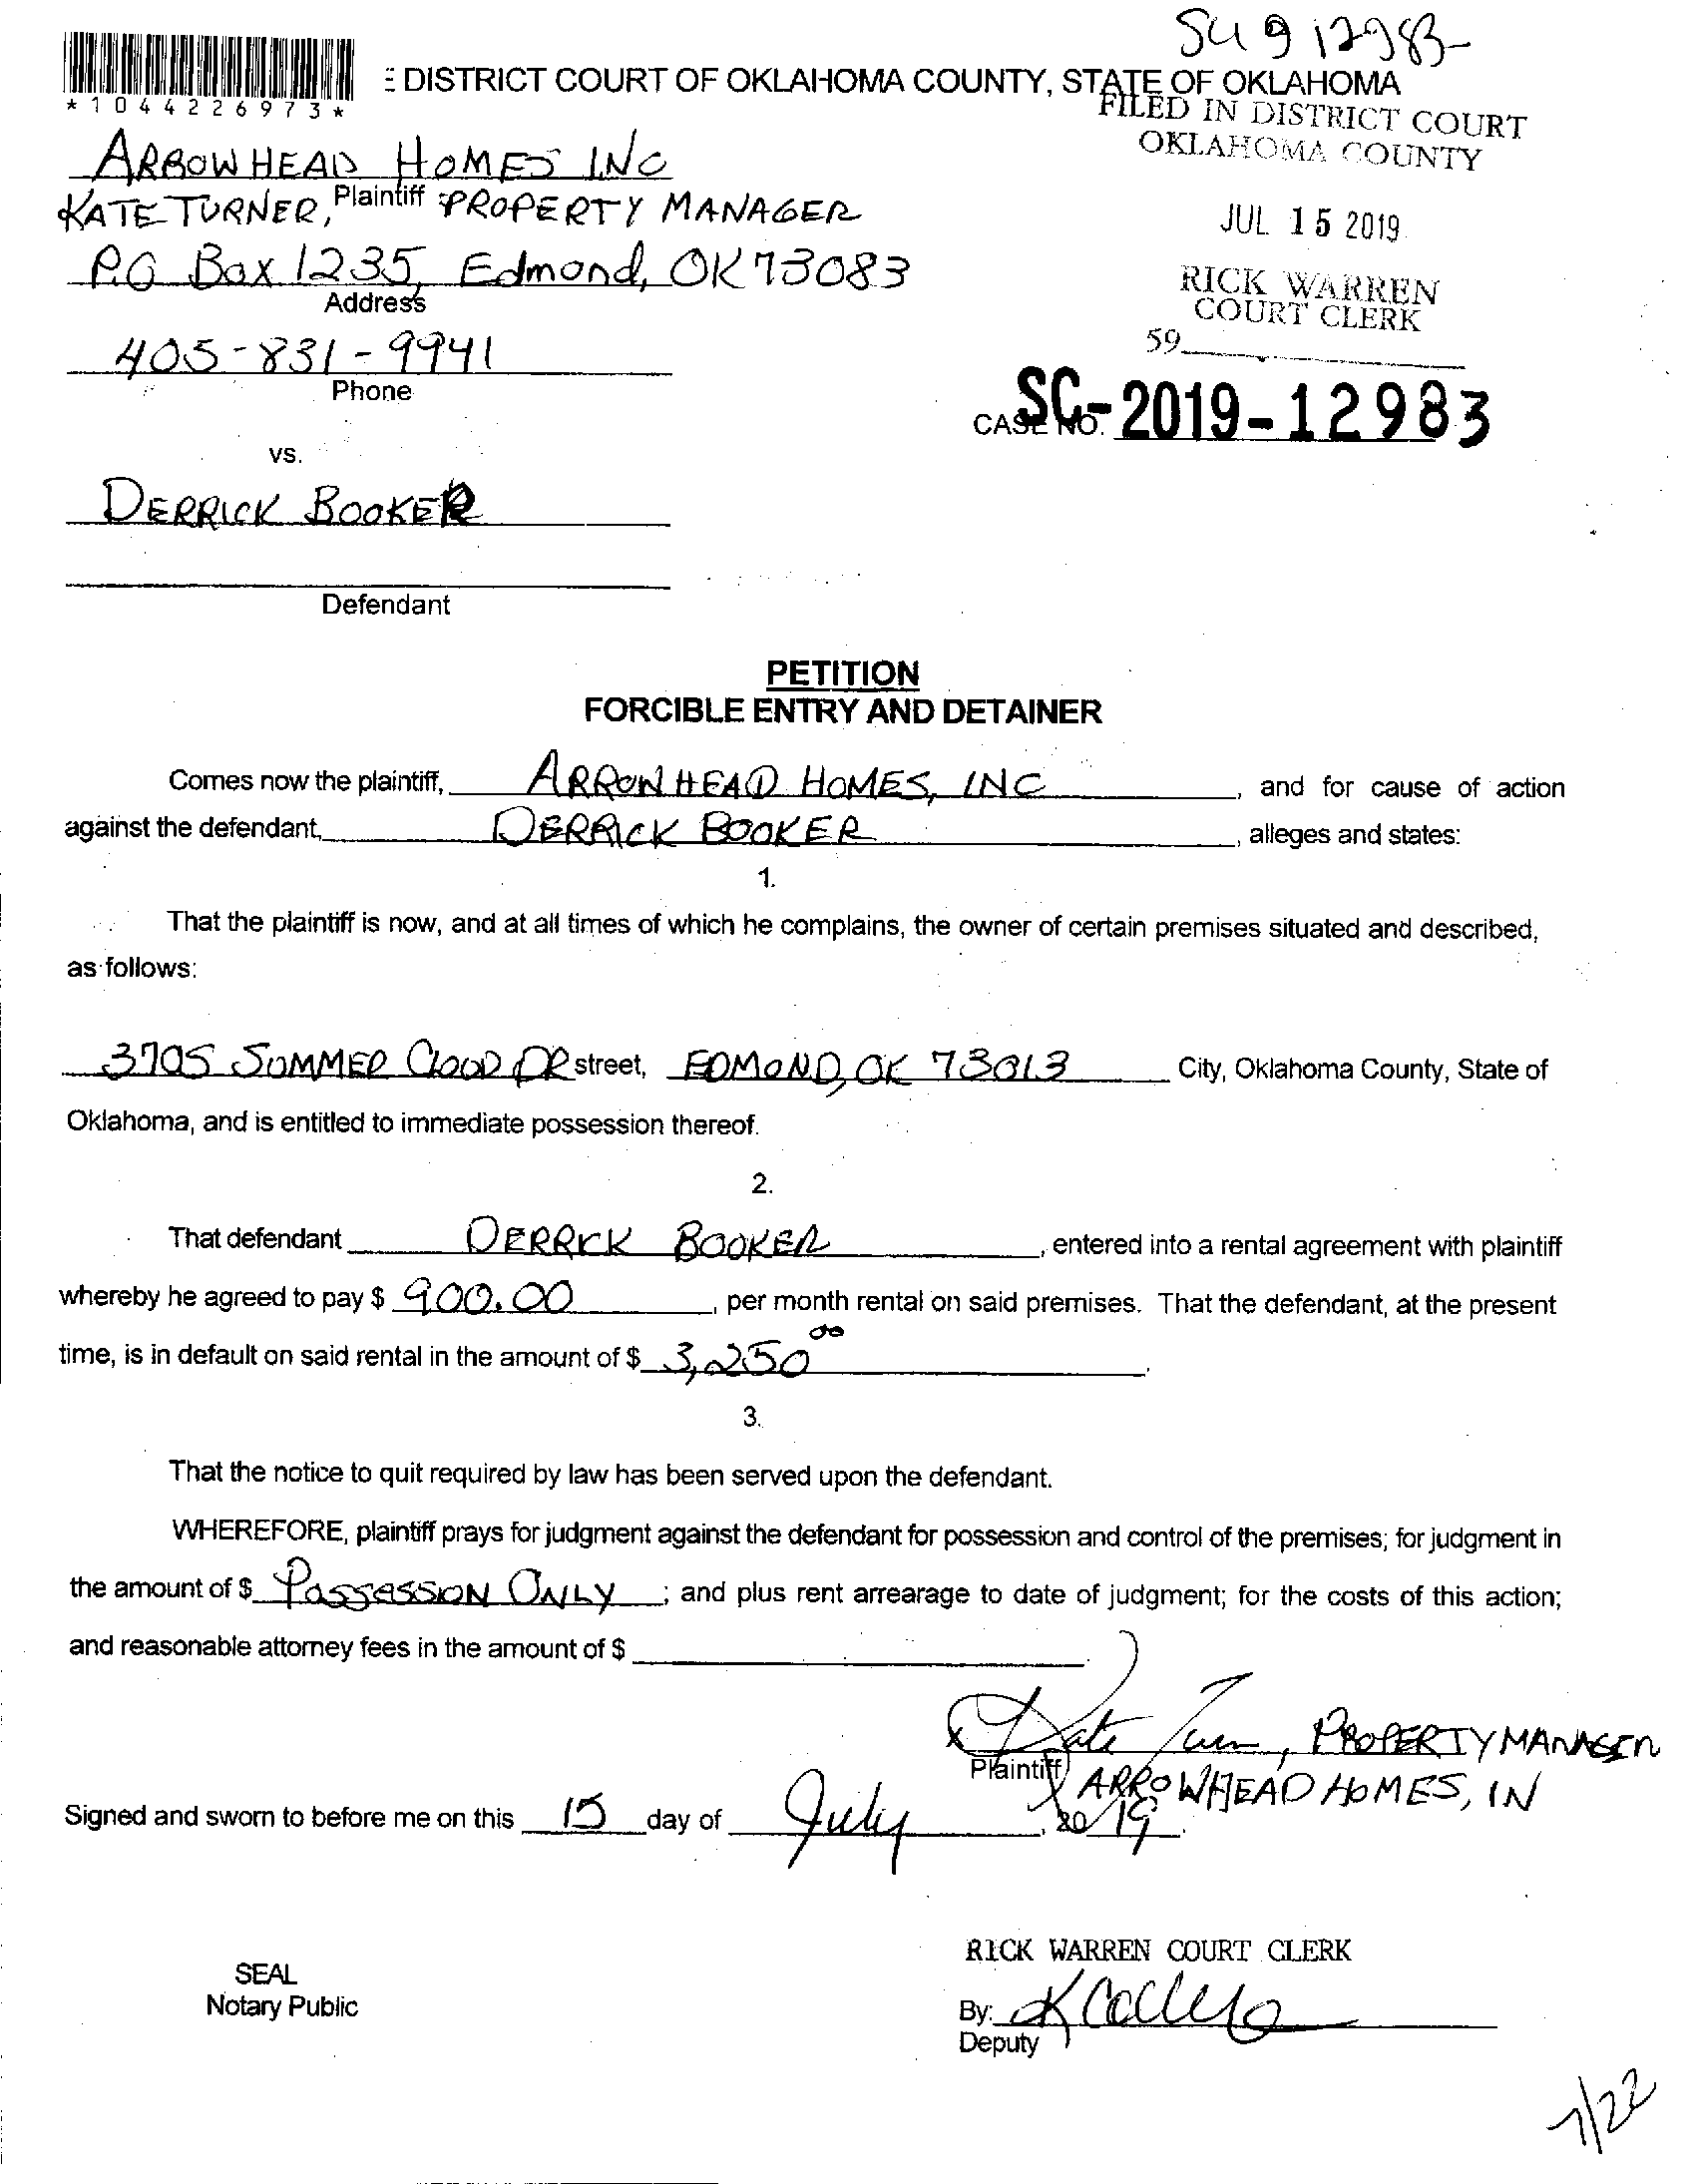 SC19 12983
*1044226973*
E DISTRICT COURT OF OKLAHOMA COUNTY, STATE OF OKLAHOMA
FILED IN DISTRICT COURT
OKLAHOMA COUNTY
JUL 15 2019
RICK WARREN
COURT CLERK
59
CASE NO. SC-2019-12983
ARROWHEAD HOMES INC
Plaintiff
KATE TURNER, PROPERTY MANAGER
P.O Box 1235, Edmond, OK 73083
Address
405-831-9941
Phone
vs.
DERRICK BOOKER
Defendant
PETITION
FORCIBLE ENTRY AND DETAINER
Comes now the plaintiff, ARROWHEAD HOMES, INC, and for cause of action
against the defendant, DERRICK BOOKER, alleges and states:
1.
That the plaintiff is now, and at all times of which he complains, the owner of certain premises situated and described,
as follows:
3705 SUMMER CLOUD DR street, EDMOND, OK 73013 City, Oklahoma County, State of
Oklahoma, and is entitled to immediate possession thereof.
2.
That defendant DERRICK BOOKER, entered into a rental agreement with plaintiff
whereby he agreed to pay $ 900.00, per month rental on said premises. That the defendant, at the present
time, is in default on said rental in the amount of $ 3,250 00.
3.
That the notice to quit required by law has been served upon the defendant.
WHEREFORE, plaintiff prays for judgment against the defendant for possession and control of the premises; for judgment in
the amount of $ POSSESSION ONLY; and plus rent arrearage to date of judgment; for the costs of this action;
and reasonable attorney fees in the amount of $
x Kate Turner, PROPERTY MANAGER
Plaintiff ARROWHEAD HOMES, IN
Signed and sworn to before me on this 15 day of July, 2019.
RICK WARREN COURT CLERK
SEAL
Notary Public
By:
Deputy
7/22